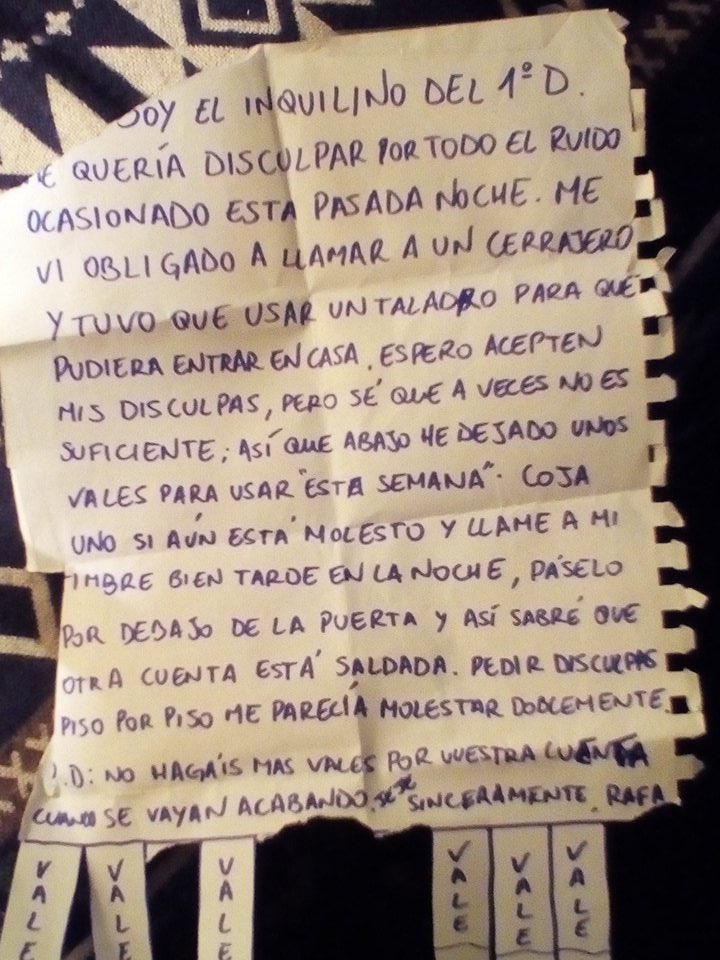 SOY EL INQUILINO DEL 1º D.
ME QUERÍA DISCULPAR POR TODO EL RUIDO
OCASIONADO ESTA PASADA NOCHE. ME
VI OBLIGADO A LLAMAR A UN CERRAJERO
Y TUVO QUE USAR UN TALADRO PARA QUE
PUDIERA ENTRAR EN CASA. ESPERO ACEPTEN
MIS DISCULPAS, PERO SÉ QUE A VECES NO ES
SUFICIENTE; ASÍ QUE ABAJO HE DEJADO UNOS
VALES PARA USAR "ESTA SEMANA". COJA
UNO SI AÚN ESTÁ MOLESTO Y LLAME A MI
TIMBRE BIEN TARDE EN LA NOCHE, PÁSELO
POR DEBAJO DE LA PUERTA Y ASÍ SABRÉ QUE
OTRA CUENTA ESTÁ SALDADA. PEDIR DISCULPAS
PISO POR PISO ME PARECÍA MOLESTAR DOBLEMENTE.
P.D: NO HAGÁIS MAS VALES POR VUESTRA CUENTA
CUANDO SE VAYAN ACABANDO. SINCERAMENTE. RAFA
VALE
VALE
VALE
VALE
VALE
VALE